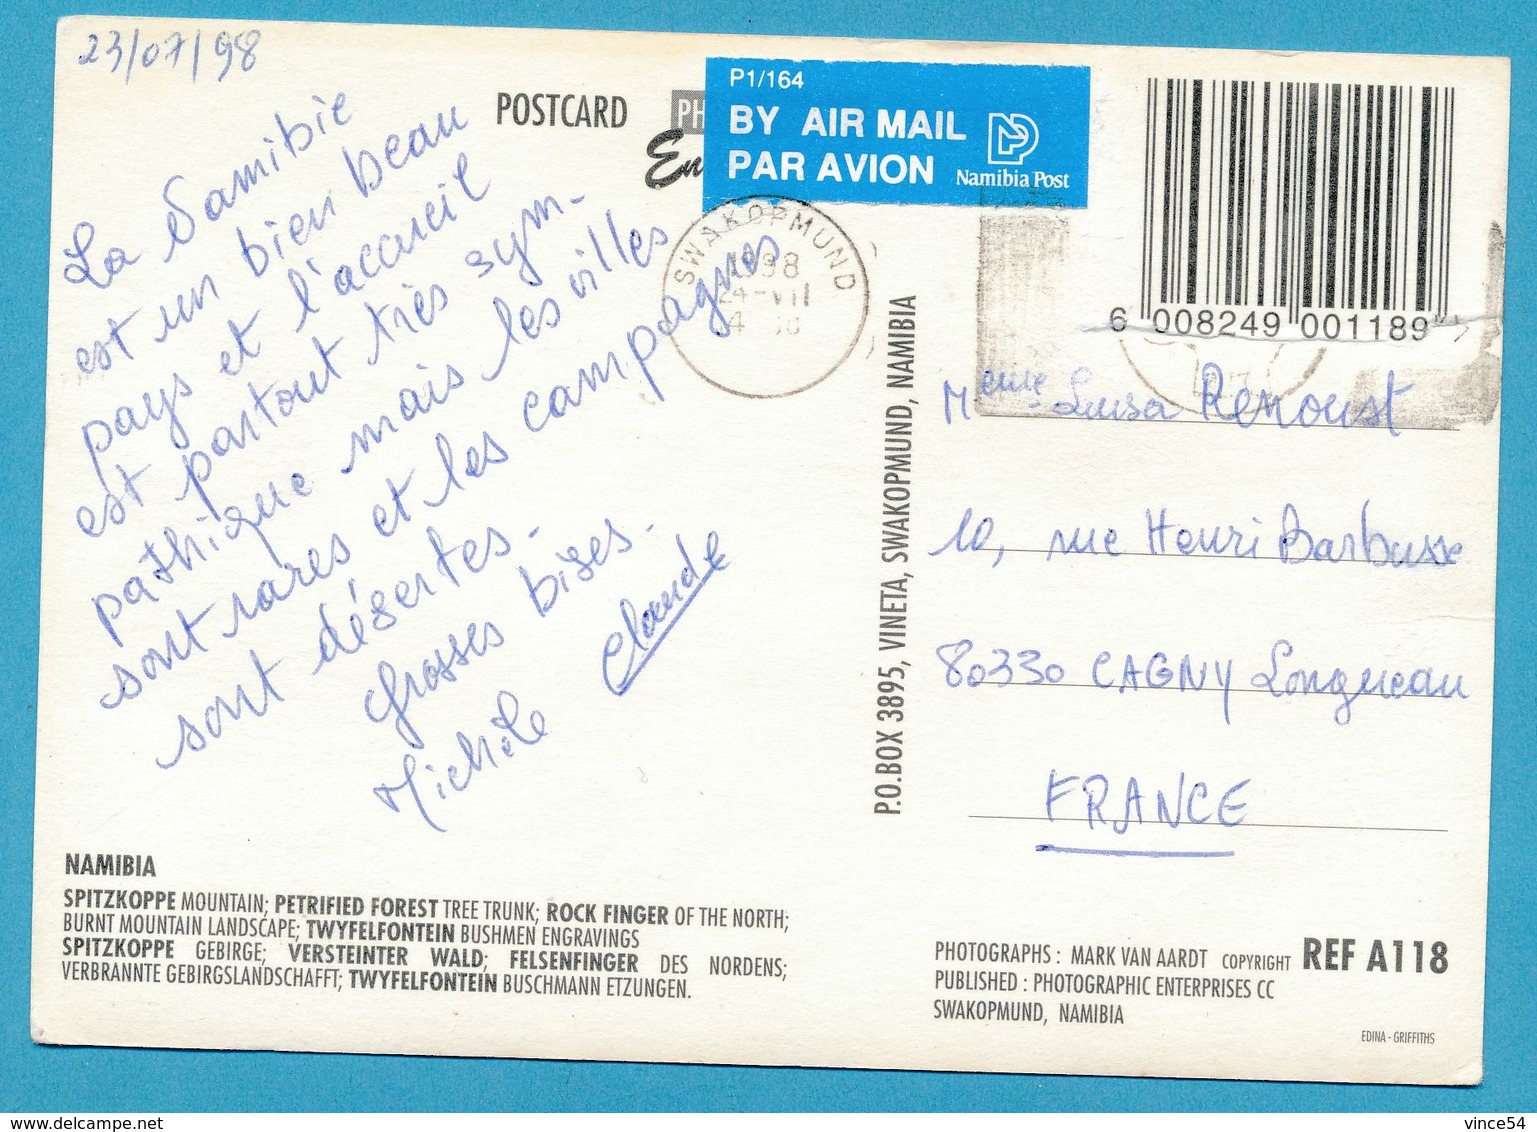 23/07/98
POSTCARD
PH
En
P1/164
BY AIR MAIL
PAR AVION
Namibia Post
6 008249 001189
SWAKOPMUND
1998
24-VII
La Namibie
est un bien beau
pays et l'accueil
est partout très sym-
pathique mais les villes
sont rares et les campagnes
sont désertes.
Grosses bises.
Michèle Claude
P.O.BOX 3895, VINETA, SWAKOPMUND, NAMIBIA
Meme Luisa Renoust
10, rue Henri Barbusse
80330 CAGNY Longueau
FRANCE
NAMIBIA
SPITZKOPPE MOUNTAIN; PETRIFIED FOREST TREE TRUNK; ROCK FINGER OF THE NORTH;
BURNT MOUNTAIN LANDSCAPE; TWYFELFONTEIN BUSHMEN ENGRAVINGS
SPITZKOPPE GEBIRGE; VERSTEINTER WALD; FELSENFINGER DES NORDENS;
VERBRANNTE GEBIRGSLANDSCHAFFT; TWYFELFONTEIN BUSCHMANN ETZUNGEN.
PHOTOGRAPHS : MARK VAN AARDT COPYRIGHT REF A118
PUBLISHED : PHOTOGRAPHIC ENTERPRISES CC
SWAKOPMUND, NAMIBIA
EDINA - GRIFFITHS
delcampe.net
vince54